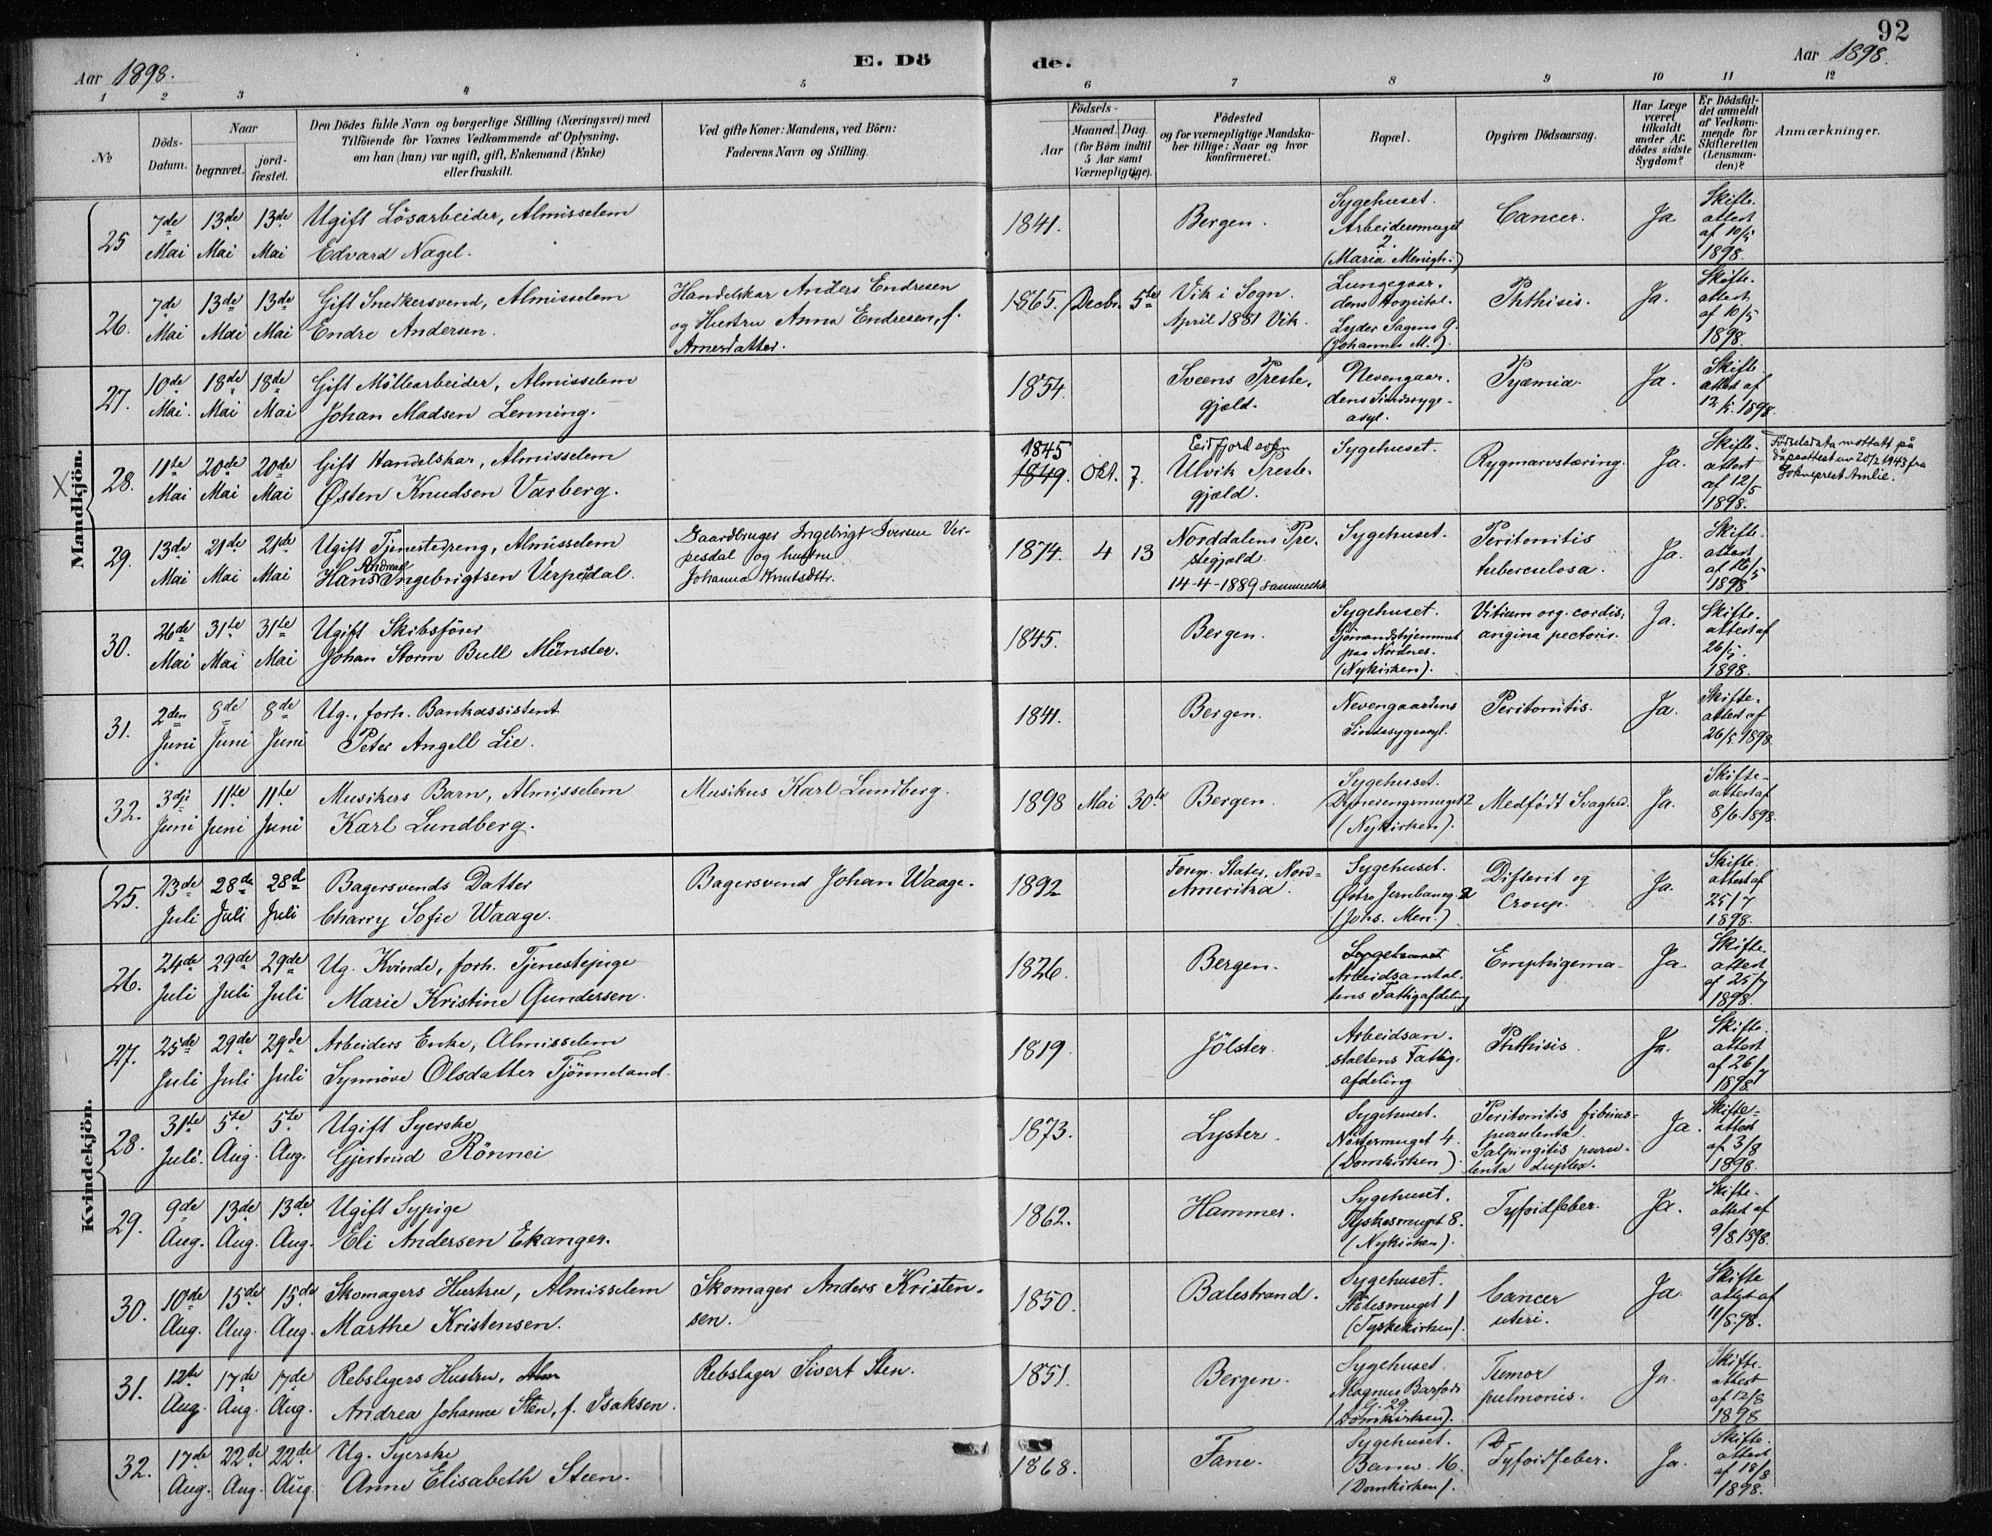 92
Aar 1898.
E. Dö
de.
Aar 1898.
1 2 3 4 5 6 7 8 9 10 11 12
№
Döds-
Datum.
Naar
begravet.
jord-
fæstet.
Den Dödes fulde Navn og borgerlige Stilling (Næringsvei) med
Tilföiende for Voxnes Vedkommende af Oplysning,
om han (hun) var ugift, gift, Enkemand (Enke)
eller fraskilt.
Ved gifte Koner: Mandens, ved Börn:
Faderens Navn og Stilling.
Födsels-
Aar
Maaned. Dag.
(for Börn indtil
5 Aar samt
Værnepligtige).
Födested
og for værnepligtige Mandska-
ber tillige: Naar og hvor
konfirmeret.
Bopæl.
Opgiven Dödsaarsag.
Har Læge
været
tilkaldt
under Af-
dödes sidste
Sygdom?
Er Dödsfal-
det anmeldt
af Vedkom-
mende for
Skifteretten
(Lensman-
den)?
Anmærkninger.
Mandkjön.
25
7de Mai
13de Mai
13de Mai
Ugift Lösarbeider, Almisselem
Edvard Nagel.
1841.
Bergen.
Sygehuset.
2.
(Maria Menigh.)
Cancer.
Ja
Skifte-
attest
af 10/5
1898.
26.
7de Mai
13de Mai
13de Mai
Gift Snedkersvend, Almisselem
Endre Andersen.
Handelskar Anders Endresen
og Hustru Anna Endresen, f.
Arnesdatter.
1865. Decbr. 5te
Vik i Sogn.
April 1881 Vik.
Lungegaar-
dens Hospital.
Lyder Sagens G.
(Johannes M.).
Phthisis.
Ja.
Skifte-
attest
af 10/5
1898.
27.
10de Mai.
18de Mai
18de Mai
Gift Möllearbeider, Almisselem
Johan Madsen Lenning.
1854.
Sveens Preste-
gjeld.
Nevengaar-
dens Sindssyge-
asyl.
Pyæmia.
Ja.
Skifte-
attest af
12/5 1898.
X
28.
11te Mai
20de Mai
20de Mai
Gift Handelskar, Almisselem
Østen Knudsen Varberg.
1845
1849. Okt. 7.
Eidfjord sokn
Ulvik Preste-
gjæld.
Sygehuset.
Rygmarvstæring.
Ja.
Skifte-
attest
af 12/5
1898.
Födselsdata mottatt på
dåpsattest av 20/2 1943 fra
Sokneprest Amlie.
29.
13de Mai
21de Mai
21de Mai
Ugift Tjenestedreng, Almisselem
Andreas
Hans Ingebrigtsen Verpesdal.
Gaardbruger Ingebrigt Iversen Ver-
pesdal og hustru
Johanna Knutsdtr.
1874. 4 13
Norddalens Pre-
stegjeld.
14-4-1889 sammesteds
Sygehuset.
Peritonitis
tuberculosa.
Ja.
Skifte-
attest
af 16/5
1898.
30.
26de Mai
31te Mai
31te Mai
Ugift Skibsförer
Johan Storm Bull Münster.
1845.
Bergen.
Sygehuset.
Sjömandshjemmet
paa Nordnes.
(Nykirken).
Vitium org. cordis,
angina pectoris.
Ja.
Skifte-
attest af
26/5.
1898.
31.
2den Juni
8de Juni
8de Juni
Ug., forh. Bankassistent
Peter Angell Lie.
1841.
Bergen.
Nevengaardens
Sindssygeasyl.
Peritonitis.
Ja.
Skifte-
attest af
26/5 1898.
32.
3die Juni
11te Juni
11te Juni
Musikers Barn, Almisselem
Karl Lundberg.
Musikus Karl Lundberg.
1898 Mai 30te
Bergen.
Sygehuset.
(Nykirken).
Medfödt Svaghed.
Ja.
Skifte-
attest af
8/6.1898.
Kvindekjön.
25.
23de Juli
28de Juli
28d Juli
Bagersvends Datter
Charry Sofie Waage.
Bagersvend Johan Waage.
1892
Foren. Stater, Nord-
Amerika.
Sygehuset.
Östre Jernbaneg. 2
(Johs. Men.)
Difterit og
Croup.
Ja.
Skifte-
attest af
25/7
1898.
26.
24de Juli
29de Juli
29de Juli
Ug. Kvinde, forh. Tjenestepige
Marie Kristine Gundersen.
1826.
Bergen.
Sygehuset
Arbeidsanstal-
tens Fattigafdeling
Emphysema.
Ja.
Skifte-
attest
af 25/7
1898.
27.
25de Juli
29de Juli
29de Juli
Arbeiders Enke, Almisselem
Synnöve Olsdatter Tjönneland.
1819.
Jölster.
Arbeidsan-
staltens Fattig-
afdeling
Phthisis.
Ja.
Skifte-
attest
af 26/7
1898.
28.
31te Juli.
5te Aug.
5te Aug.
Ugift Syerske
Gjertrud Rönnei
1873.
Lyster.
Sygehuset.
Nöstesmuget 4.
(Domkirken).
Peritonitis fibrino-
purulenta.
Salpingitis puru-
lenta duplex.
Ja.
Skifte-
attest
af 3/8
1898.
29.
9de Aug.
13de Aug.
13de Aug.
Ugift Sypige
Eli Andersen Ekanger.
1862.
Hammer.
Sygehuset.
8.
(Nykirken).
Tyfoidfeber.
Ja.
Skifte-
attest af
9/8.1898.
30.
10de Aug.
15de Aug.
15de Aug.
Skomagers Hustru, Almisselem
Marthe Kristensen.
Skomager Anders Kristen-
sen.
1850.
Balestrand.
Sygehuset.
1
(Tyskekirken).
Cancer
uteri.
Ja.
Skifte
attest af
11/8.98.
31.
12te Aug.
17de Aug.
17de Aug.
Rebslagers Hustru, Alm
Andrea Johanne Sten, f. Isaksen.
Rebslager Sivert Sten.
1851.
Bergen.
Sygehuset.
Magnus Barfods
G. 29
(Domkirken).
Tumor
pulmonis.
Ja.
Skifte-
attest
af 12/8
1898
32.
17de Aug.
22de Aug.
22de Aug.
Ug. Syerske
Anne Elisabeth Steen.
1868.
Fane.
Sygehuset.
16.
(Domkirken).
Tyfoidfeber.
Ja.
Skifte-
attest
af 18/8
1898.